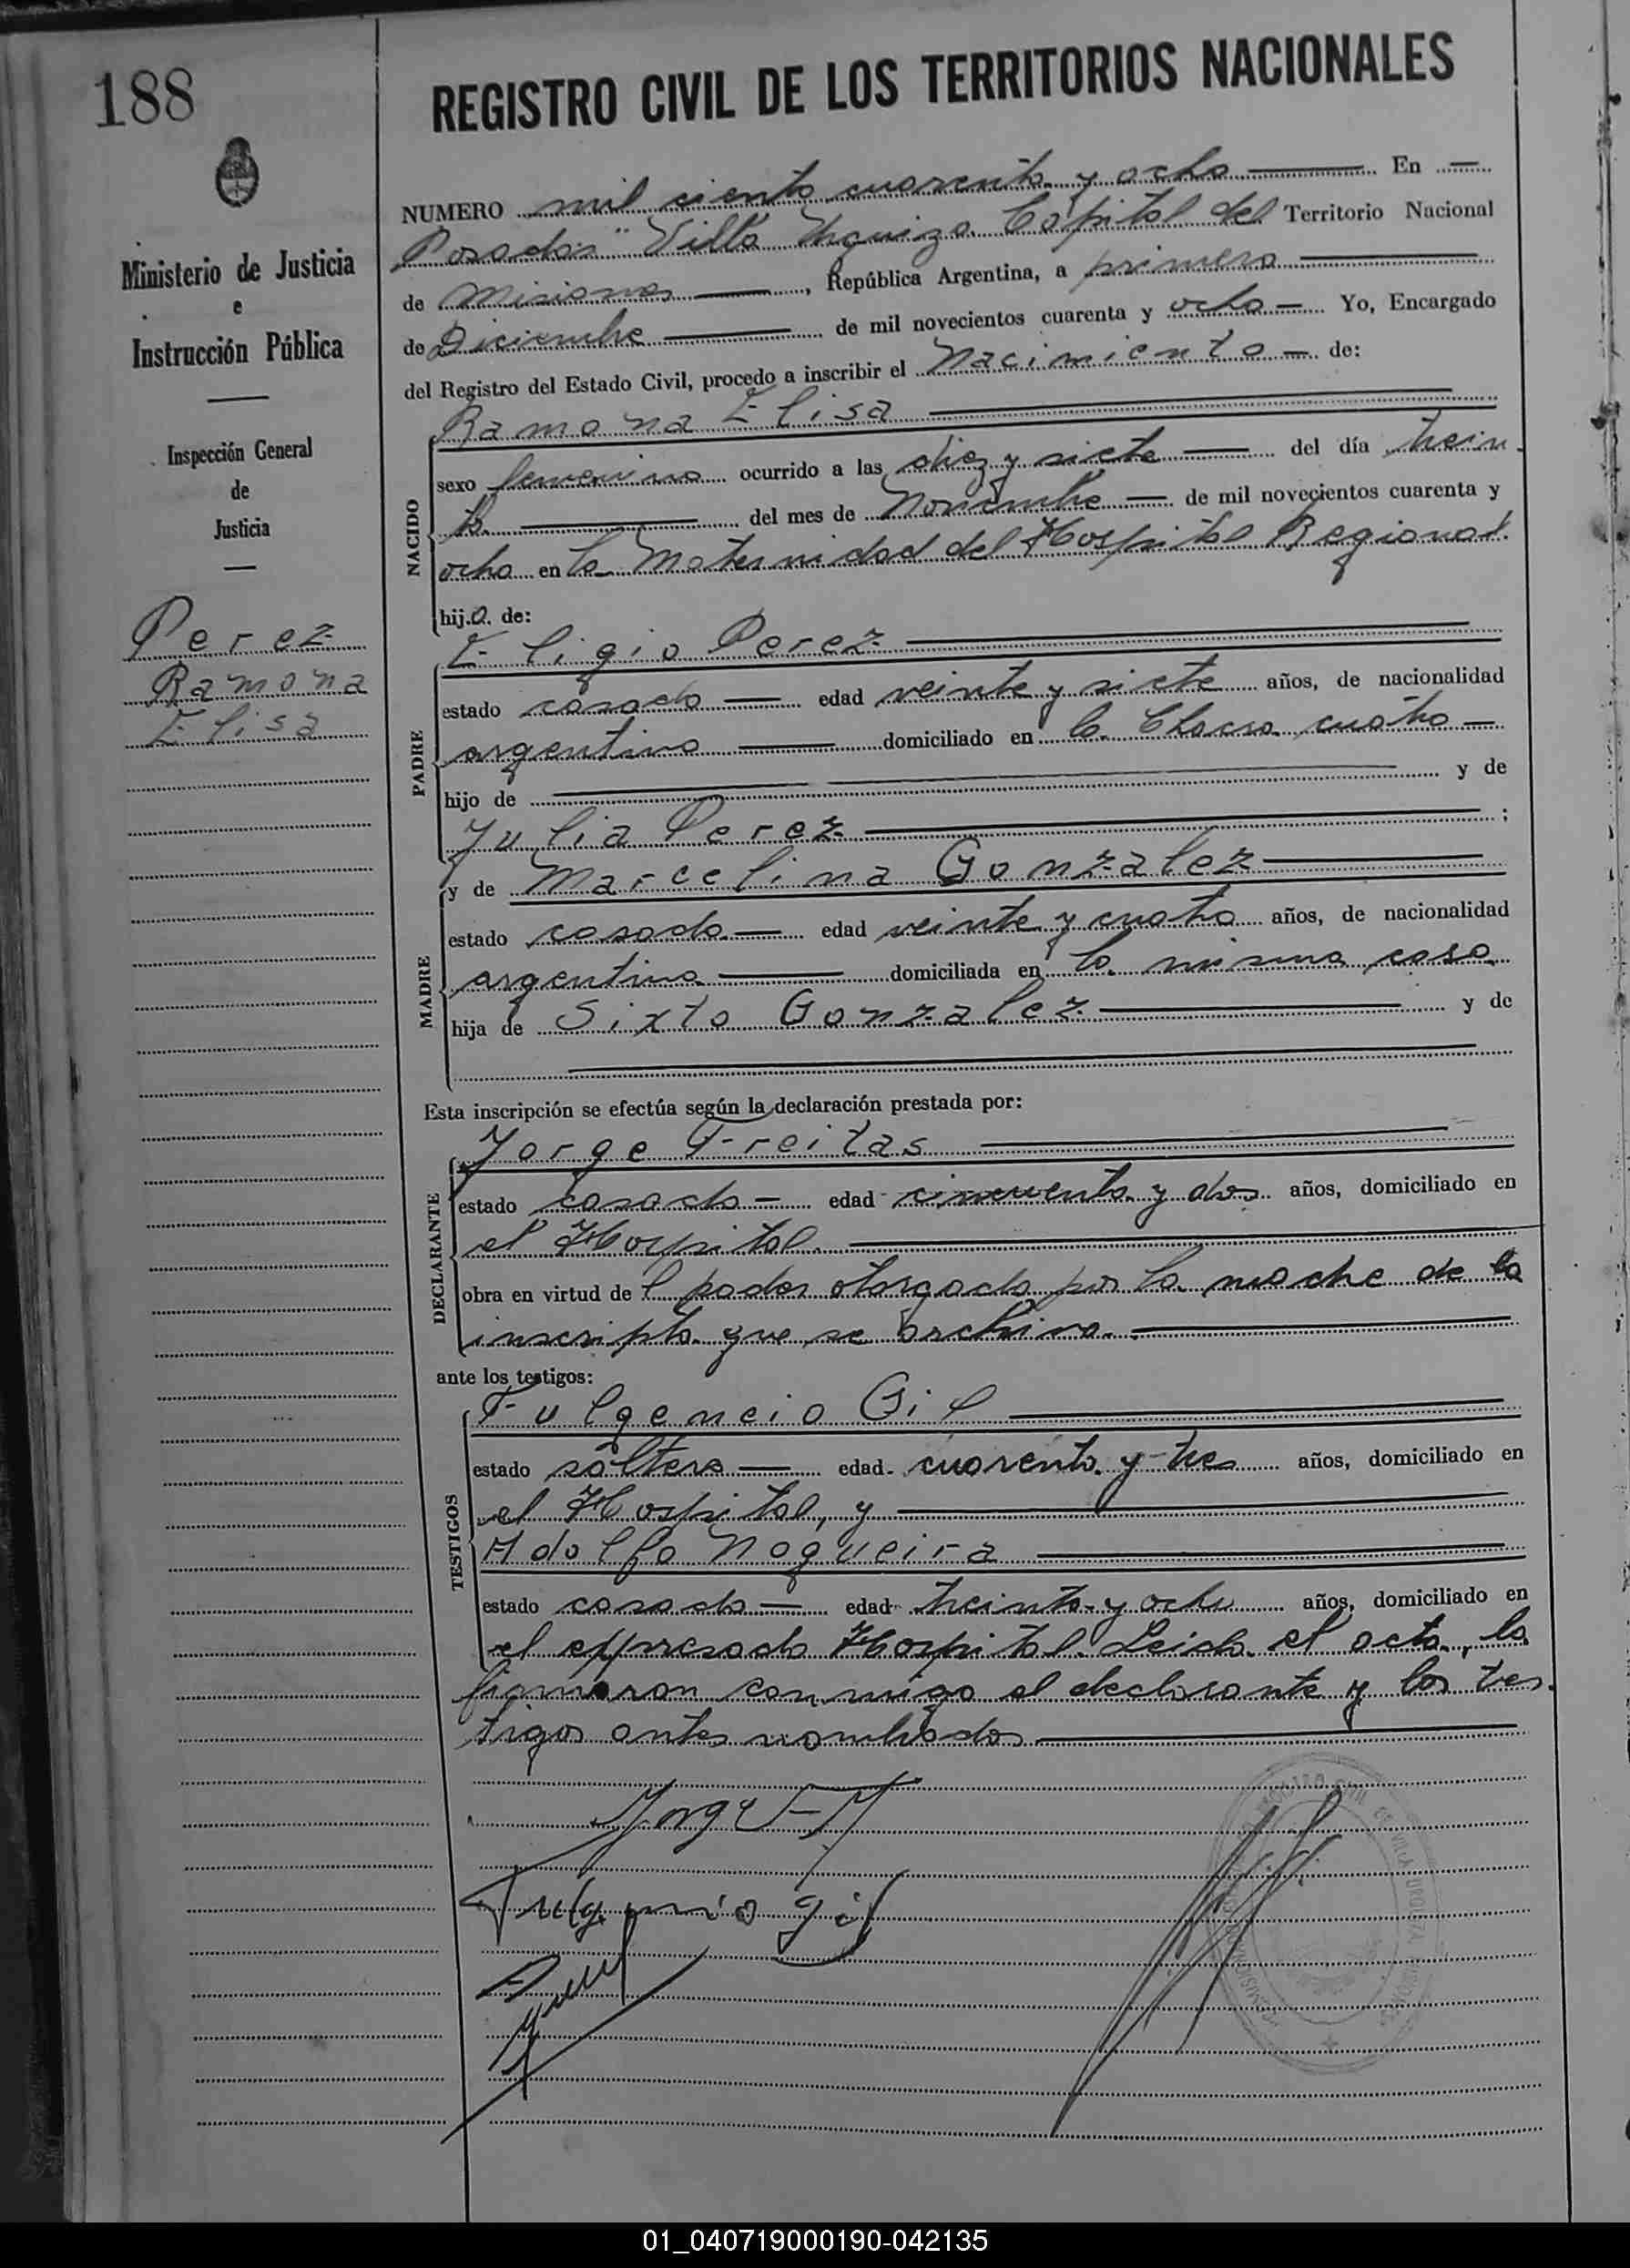 188
REGISTRO CIVIL DE LOS TERRITORIOS NACIONALES
Ministerio de Justicia
e
Instrucción Pública
Inspección General
de
Justicia
Perez
Ramona
Elisa
NUMERO mil ciento cuarenta y ocho En
Posadas "Villa Urquiza Capital del Territorio Nacional
de Misiones, República Argentina, a primero
de Diciembre de mil novecientos cuarenta y ocho Yo, Encargado
del Registro del Estado Civil, procedo a inscribir el Nacimiento de:
Ramona Elisa
NACIDO
sexo femenino ocurrido a las diez y siete del día trein
ta del mes de Noviembre de mil novecientos cuarenta y
ocho en la Maternidad del Hospital Regional.
hija de:
Eligio Perez
PADRE
estado casado edad veinte y siete años, de nacionalidad
argentino domiciliado en la Chacra cuatro
hijo de y de
Julia Perez ;
y de Marcelina Gonzalez
MADRE
estado casada edad veinte y cuatro años, de nacionalidad
argentina domiciliada en la misma casa
hija de Sixto Gonzalez y de
Esta inscripción se efectúa según la declaración prestada por:
Jorge Freitas
DECLARANTE
estado casado edad cincuenta y dos años, domiciliado en
el Hospital
obra en virtud de l poder otorgado por la madre de la
inscripta que se archiva.
ante los testigos:
Fulgencio Gil
TESTIGOS
estado soltero edad cuarenta y tres años, domiciliado en
el Hospital, y
Adolfo Nogueira
estado casado edad treinta y ocho años, domiciliado en
el expresado Hospital. Leida el acta, la
firmaron conmigo el declarante y los tes
tigos antes nombrados
Jorge
Fulgencio Gil
REGISTRO CIVIL DE VILLA URQUIZA
01_040719000190-042135